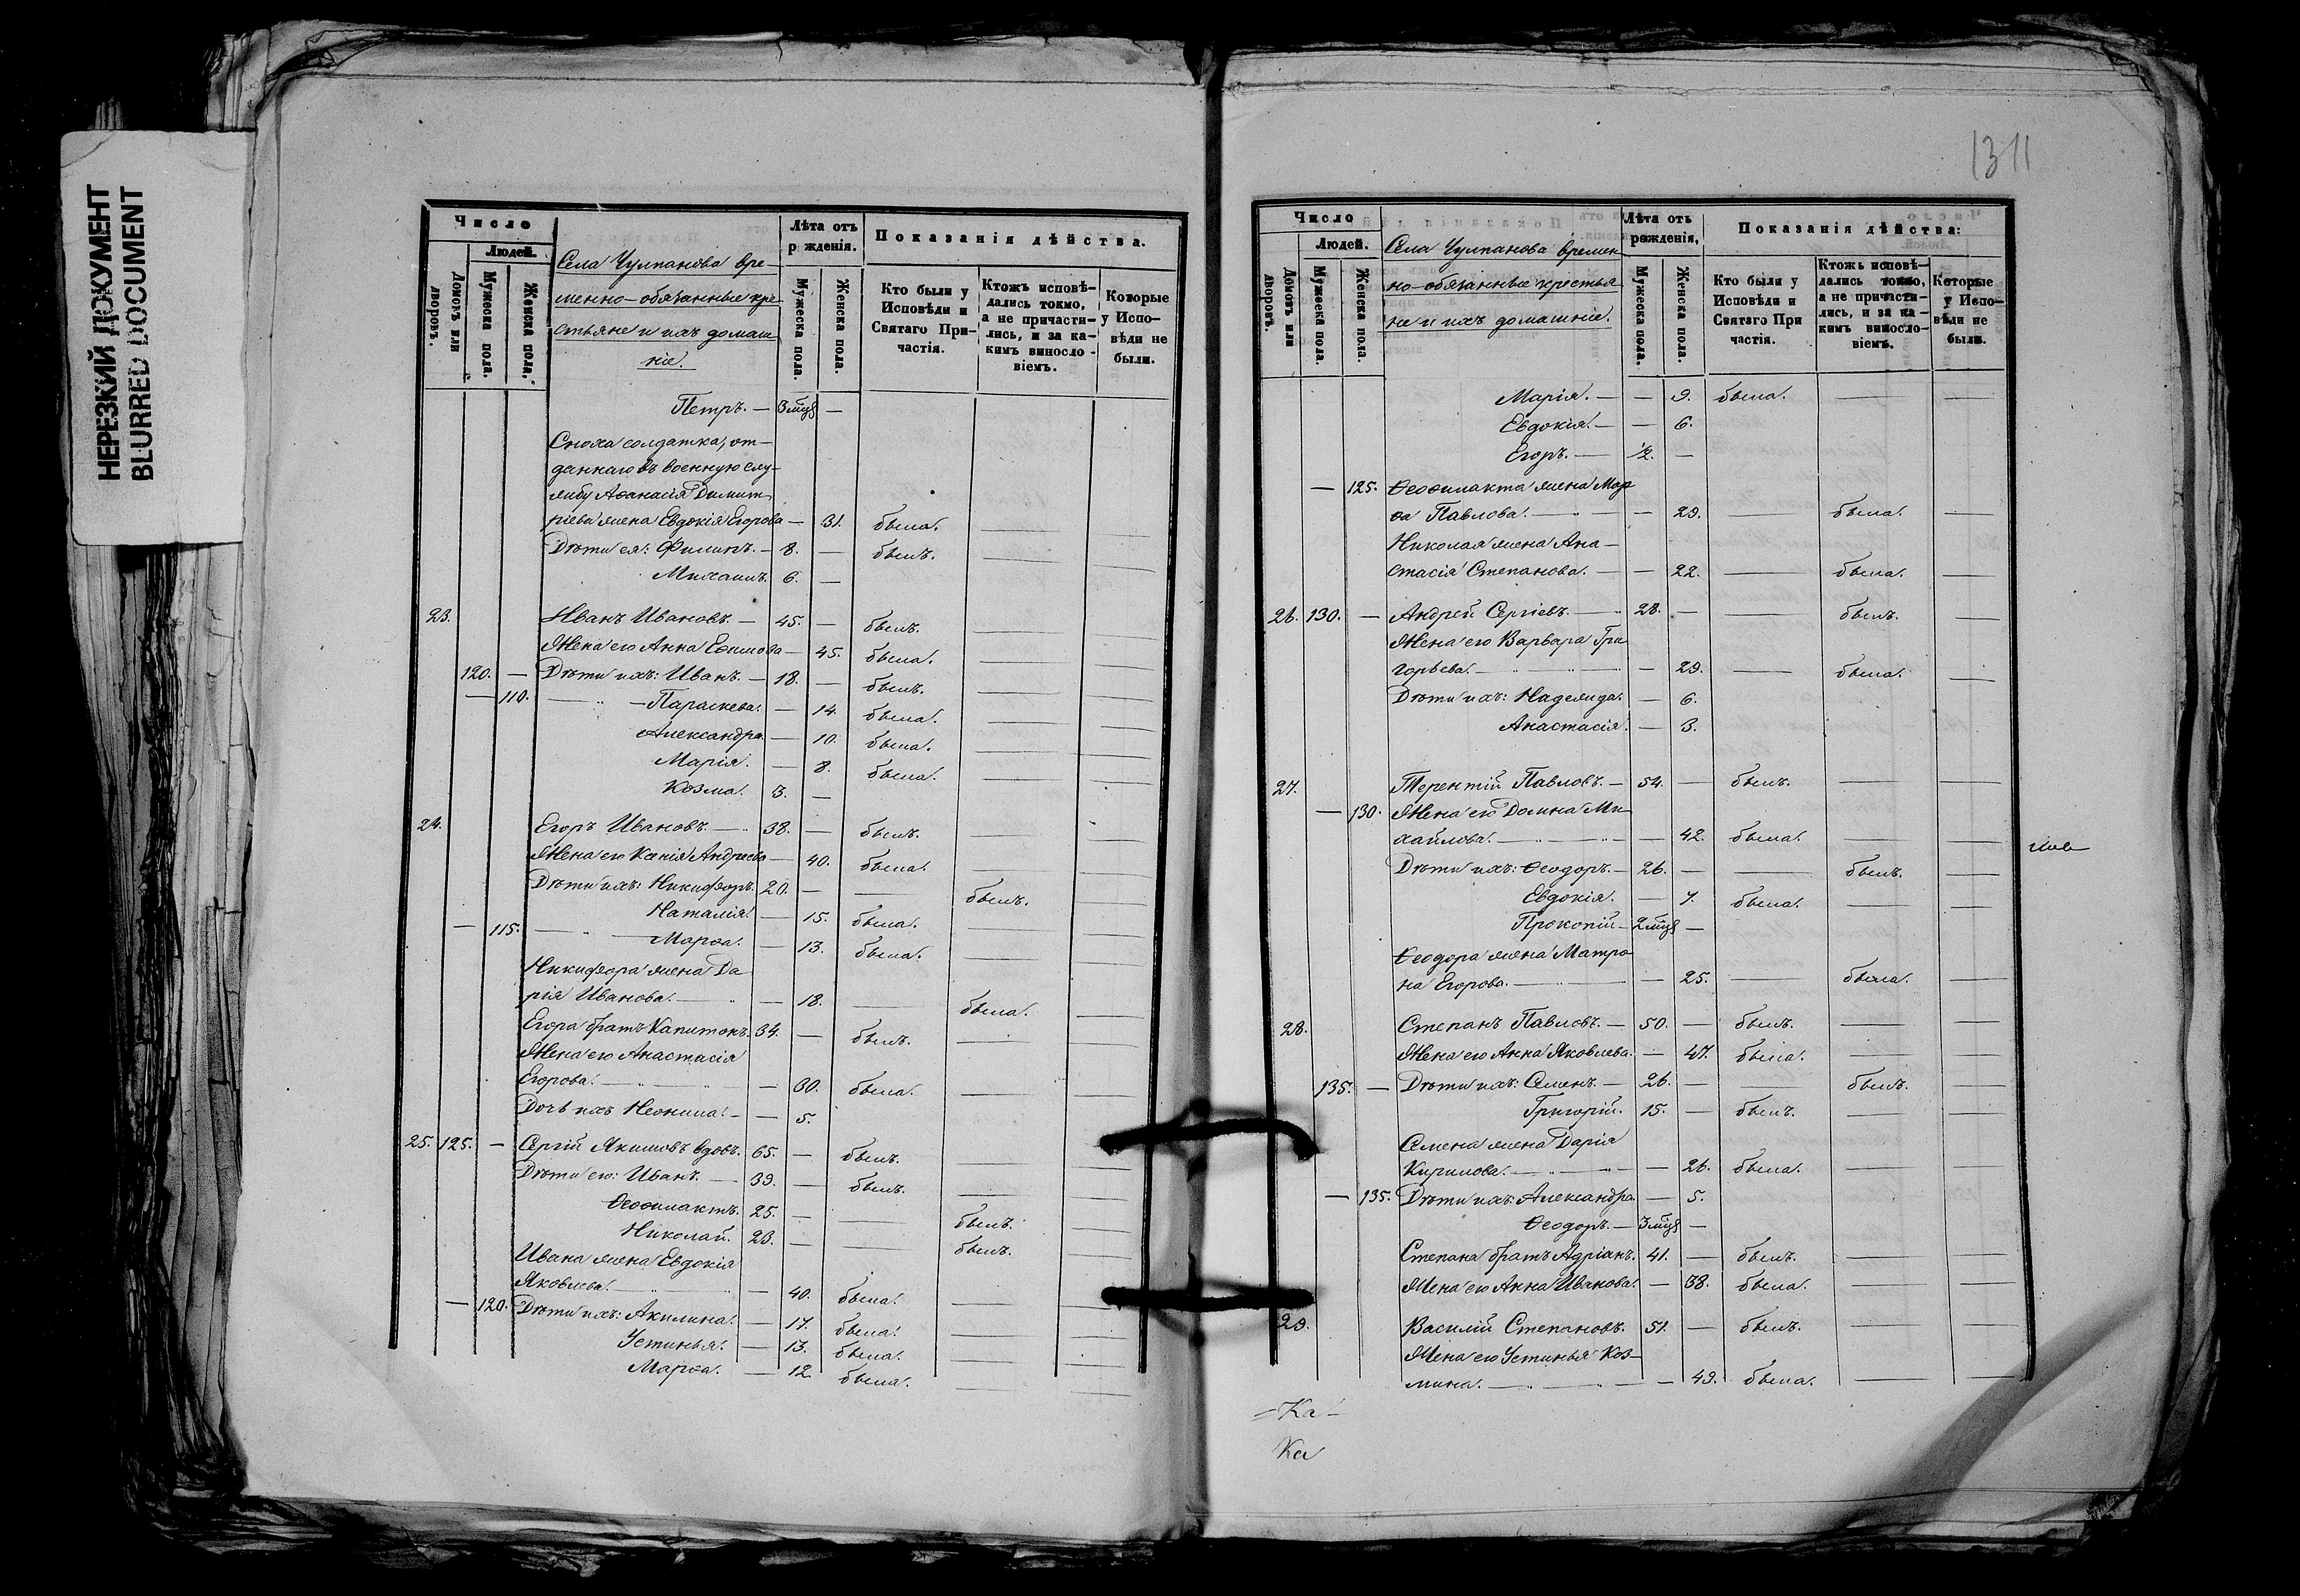 НЕРЕЗКИЙ ДОКУМЕНТ
BLURRED DOCUMENT
Число
Людей.
Домовъ или дворовъ.
Мужеска пола.
Женска пола.
Села Чулпанова вре-
менно-обязанные кре-
стьяне и ихъ домаш-
ніе.
Лѣта отъ
р жденія.
Мужеска пола.
Женска пола.
Показанія дѣйства.
Кто были у
Исповѣди и
Святаго При-
частія.
Ктожъ исповѣ-
дались токмо,
а не причасти-
лись, и за ка-
кимъ винословіемъ.
Которые
у Испо-
вѣди не
были.
Петръ. — 3 мѣц —
Сноха солдатка, от-
даннаго въ военную слу-
жбу Аѳанасія Димит-
ріева жена Евдокія Егорова — 31. была. — —
Дѣти ея: Филипъ. — 8. — былъ. — —
Михаилъ. 6. —
23. Иванъ Ивановъ. — 45. — былъ. — —
Жена его Анна Еѳимова — 45. была. — —
120. — Дѣти ихъ: Иванъ. — 18. — былъ. — —
— 110. — „ — Параскева. — 14. была. — —
Александра. — 10. была. — —
Марія. — 8. была. — —
Козма. 3. —
24. Егоръ Ивановъ. — „ 38. — былъ. — —
Жена его Ксенія Андреева — 40. была. — —
Дѣти ихъ: Никифоръ. 20. — — былъ. —
Наталія. — 15. была. — —
— 115. — „ — Марѳа. — 13. была. — —
Никифора жена Да-
рія Иванова. — „ — 18. — была. —
Егора братъ Капитонъ. 34. — былъ. — —
Жена его Анастасія
Егорова. — „ „ — 30. была. — —
Дочь ихъ Неонила. — — 5.
25. 125. — Сергій Якимовъ вдовъ. 65. — былъ. — —
Дѣти его: Иванъ. — 39. — былъ. — —
Ѳеофилактъ. 25. — — былъ. —
Николай. 23. — — былъ. —
Ивана жена Евдокія
Яковлева. — „ „ — 40. была. — —
— 120. Дѣти ихъ: Акилина. — 17. была. — —
Устинья. — 13. была. — —
Марѳа. — 12. была. — —
1311
Число
Людей.
Домовъ или дворовъ.
Мужеска пола.
Женска пола.
Села Чулпанова времен-
но-обязанные крестья-
не и ихъ домашніе.
Лѣта отъ
рожденія,
Мужеска пола.
Женска пола.
Показанія дѣйства:
Кто были у
Исповѣди и
Святаго При
частія.
Ктожъ исповѣ-
дались токмо,
а не причасти-
лись, и за ка-
кимъ винословіемъ.
Которые
у Испо-
вѣди не
были.
Марія. — — 9. была. — —
Евдокія. — — 6.
Егоръ. — ½. —
— 125. Ѳеофилакта жена Мар-
ѳа Павлова. — „ — — 29. — была. —
Николая жена Ана-
стасія Степанова. — — 22. — была. —
26. 130. — Андрей Сергіевъ. — „ 28. — былъ.
Жена его Варвара Гри-
горьева. — „ „ — — 29. — была. —
Дѣти ихъ: Надежда. — 6.
Анастасія. — 3.
27. Терентій Павловъ. — 54. — былъ. — —
— 130. Жена его Домна Ми-
хайлова. — „ — „ — — 42. была. — —
Дѣти ихъ: Ѳеодоръ. — 26. — — былъ. —
Евдокія. — 7. была. — —
Прокопій — 2 мѣц —
Ѳеодора жена Матро-
на Егорова. — „ — — 25. — была. —
28. Степанъ Павловъ. — 50. — былъ. — —
Жена его Анна Яковлева. — 47. была. — —
135. — Дѣти ихъ: Семенъ. — 26. — — былъ. —
Григорій. 15. — былъ. — —
Семена жена Дарія
Кирилова. — „ — „ — — 26. была. — —
— 135. Дѣти ихъ: Александра. — 5.
Ѳеодоръ. — 3 мѣц —
Степана братъ Адріанъ. 41. — былъ. — —
Жена его Анна Иванова. — 38. была. — —
29. Василій Степановъ. 51. — былъ. — —
Жена его Устинья Коз-
мина. — „ — „ — — 49. была. — —
= Ка —
Ка